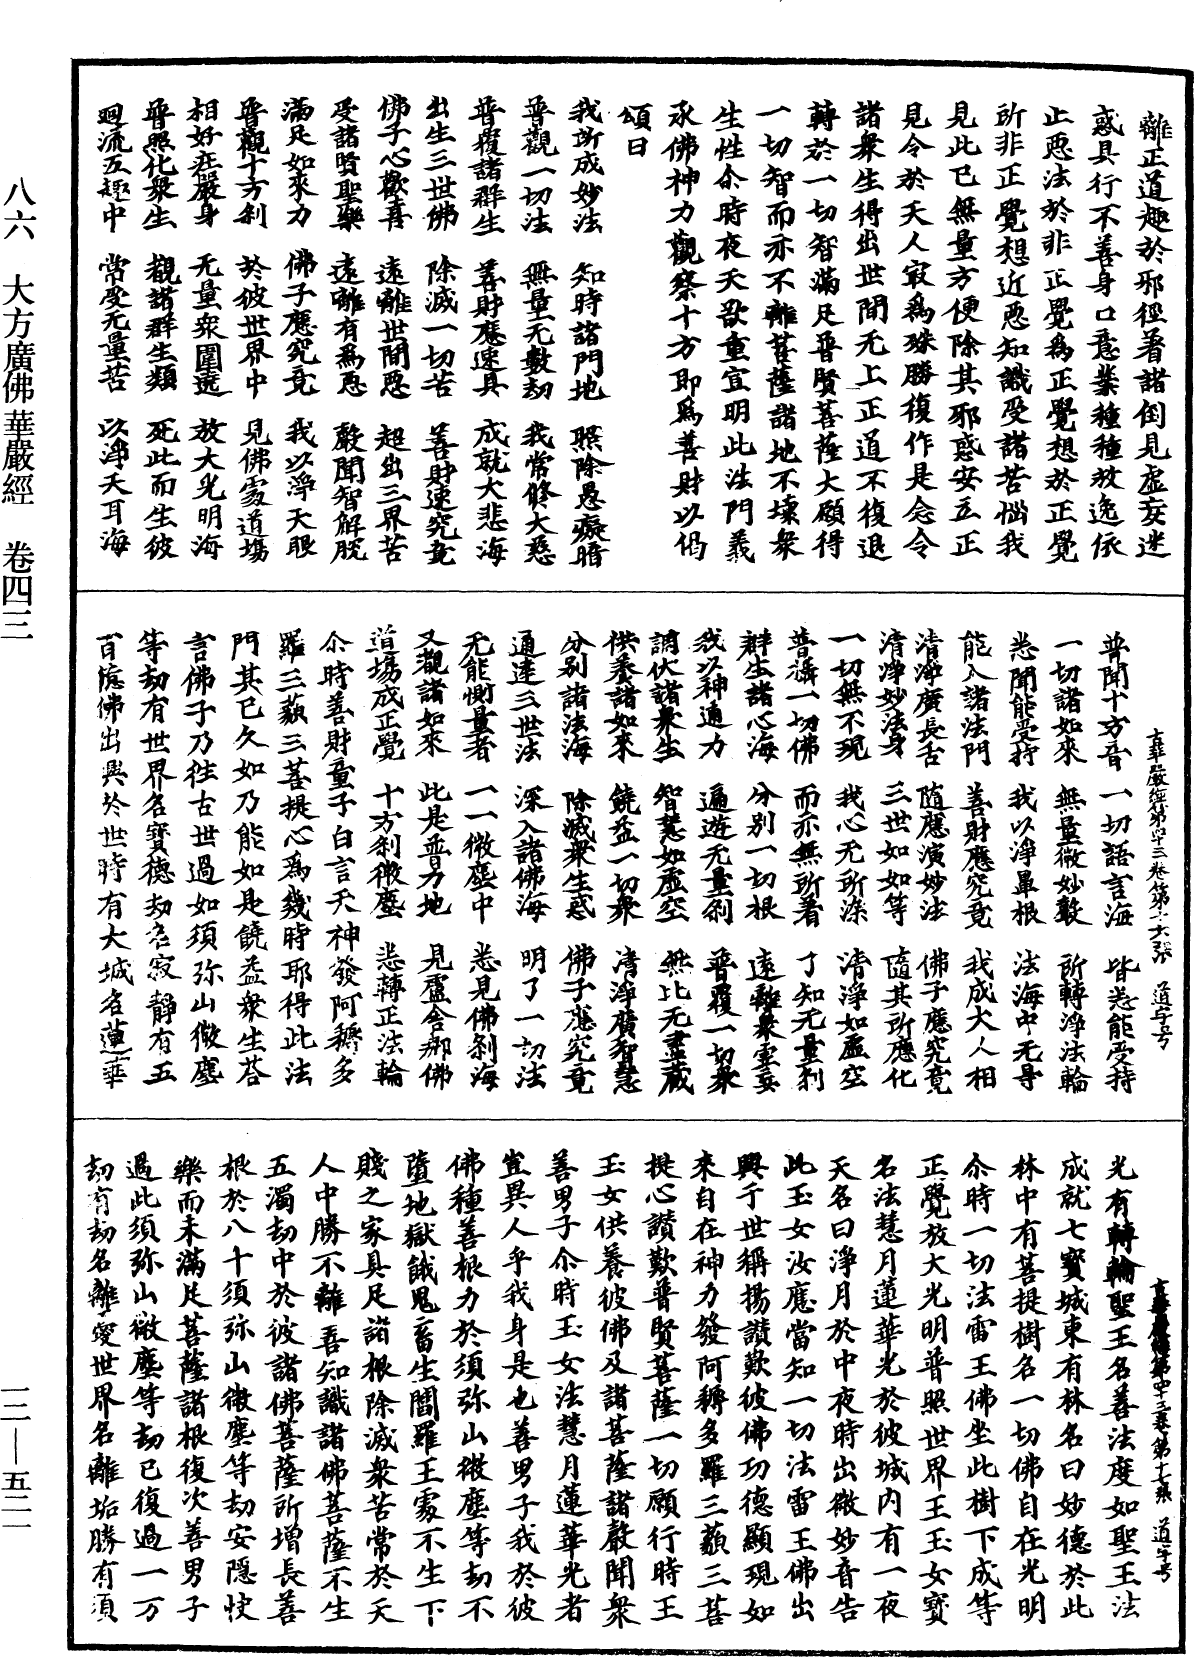 離正道趣於邪徑著諸倒見虛妄迷
惑具行不善身口意業種種放逸依
止惡法於非正覺為正覺想於正覺
所非正覺想近惡知識受諸苦惱我
見此已無量方便除其邪惑安立正
見令於天人寂為殊勝復作是念令
諸眾生得出世間无上正道不復退
轉於一切智滿足普賢菩薩大願得
一切智而亦不離菩薩諸地不壞眾
生性尒時夜天欲重宣明此法門義
承佛神力觀察十方即為善財以偈
頌曰
我所成妙法　知時諸門地　照除愚癡暗
普觀一切法　無量无數劫　我常修大慈
普覆諸群生　善財應速具　成就大悲海
出生三世佛　除滅一切苦　善財速究竟
佛子心歡喜　遠離世間惡　超出三界苦
受諸賢聖樂　遠離有為惡　聲聞智解脫
滿足如來力　佛子應究竟　我以淨天眼
普觀十方剎　於彼世界中　見佛處道場
相好莊嚴身　无量眾圍遶　放大光明海
普照化眾生　觀諸群生類　死此而生彼
迴流五趣中　常受无量苦　以淨天耳海
普聞十方音　一切語言海　皆悉能受持
一切諸如來　無量微妙聲　所轉淨法輪
悉聞能受持　我以淨鼻根　法海中无㝵
能入諸法門　善財應究竟　我成大人相
清淨廣長舌　隨應演妙法　佛子應究竟
清淨妙法身　三世如如等　隨其所應化
一切無不現　我心无所染　清淨如虛空
普攝一切佛　而亦無所著　了知无量剎
群生諸心海　分別一切根　遠離眾虛妄
我以神通力　遍遊无量剎　普覆一切眾
調伏諸眾生　智慧如虛空　無比无盡藏
供養諸如來　饒益一切眾　清淨廣智慧
分別諸法海　除滅眾生惑　佛子應究竟
通達三世法　深入諸佛海　明了一切法
无能惻量者　一一微塵中　悉見佛剎海
又觀諸如來　此是普力地　見盧舍那佛
道場成正覺　十方剎微塵　悉轉正法輪
尒時善財童子白言天神發阿耨多
羅三藐三菩提心為幾時耶得此法
門其已久如乃能如是饒益眾生荅
言佛子乃往古世過如須弥山微塵
等劫有世界名寶德劫名寂靜有五
百億佛出興於世時有大城名蓮華
光有轉輪聖王名善法度如聖王法
成就七寶城東有林名曰妙德於此
林中有菩提樹名一切佛自在光明
尒時一切法雷王佛坐此樹下成等
正覺放大光明普照世界王玉女寶
名法慧月蓮華光於彼城內有一夜
天名曰淨月於中夜時出微妙音告
此玉女汝應當知一切法雷王佛出
興于世稱揚讚歎彼佛功德顯現如
來自在神力發阿耨多羅三藐三菩
提心讚歎普賢菩薩一切願行時王
玉女供養彼佛及諸菩薩諸聲聞眾
善男子尒時玉女法慧月蓮華光者
豈異人乎我身是也善男子我於彼
佛種善根力於須弥山微塵等劫不
墮地獄餓鬼畜生閻羅王處不生下
賤之家具足諸根除滅眾苦常於天
人中勝不離善知識諸佛菩薩不生
五濁劫中於彼諸佛菩薩所增長善
根於八十須弥山微塵等劫安隱快
樂而未滿足菩薩諸根復次善男子
過此須弥山微塵等劫已復過一万
劫有劫名離憂世界名離垢勝有須
八六　大方廣佛華嚴經　卷四三
一二—五二一